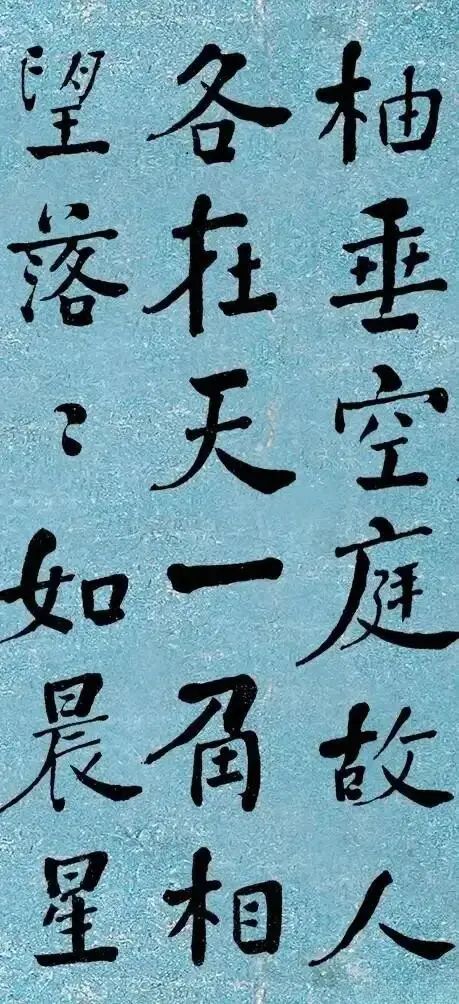 柚垂空庭故人
各在天一角相
望落〻如晨星